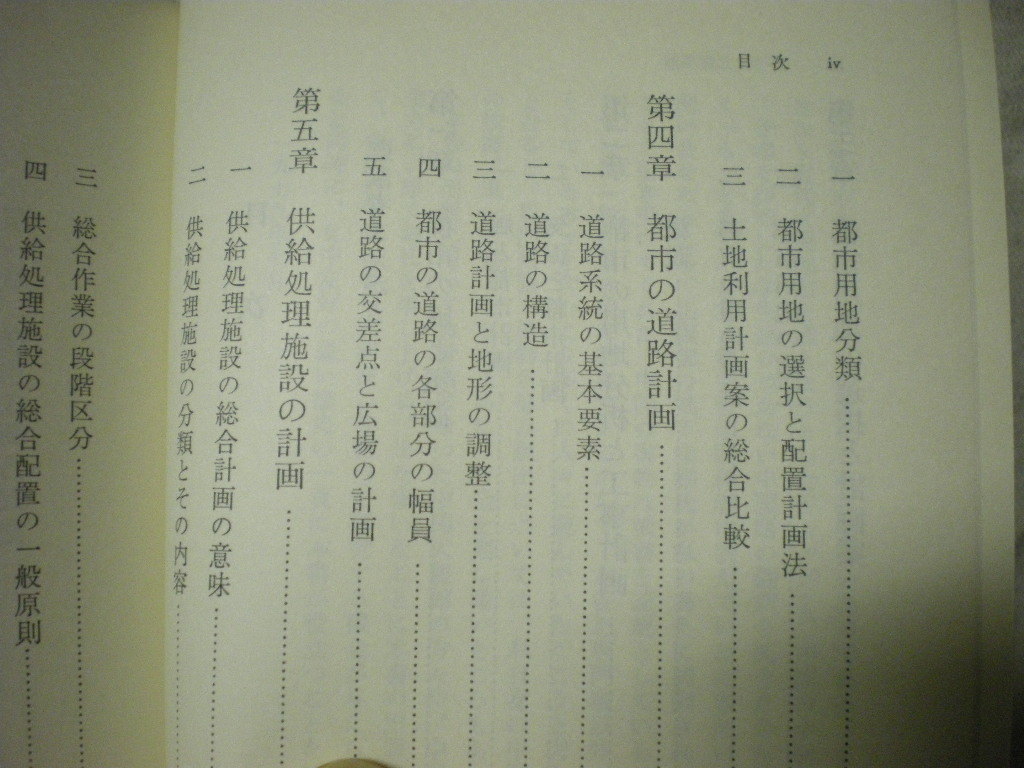 目次 iv
一 都市用地分類
二 都市用地の選択と配置計画法
三 土地利用計画案の総合比較
第四章 都市の道路計画
一 道路系統の基本要素
二 道路の構造
三 道路計画と地形の調整
四 都市の道路の各部分の幅員
五 道路の交差点と広場の計画
第五章 供給処理施設の計画
一 供給処理施設の総合計画の意味
二 供給処理施設の分類とその内容
三 総合作業の段階区分
四 供給処理施設の総合配置の一般原則